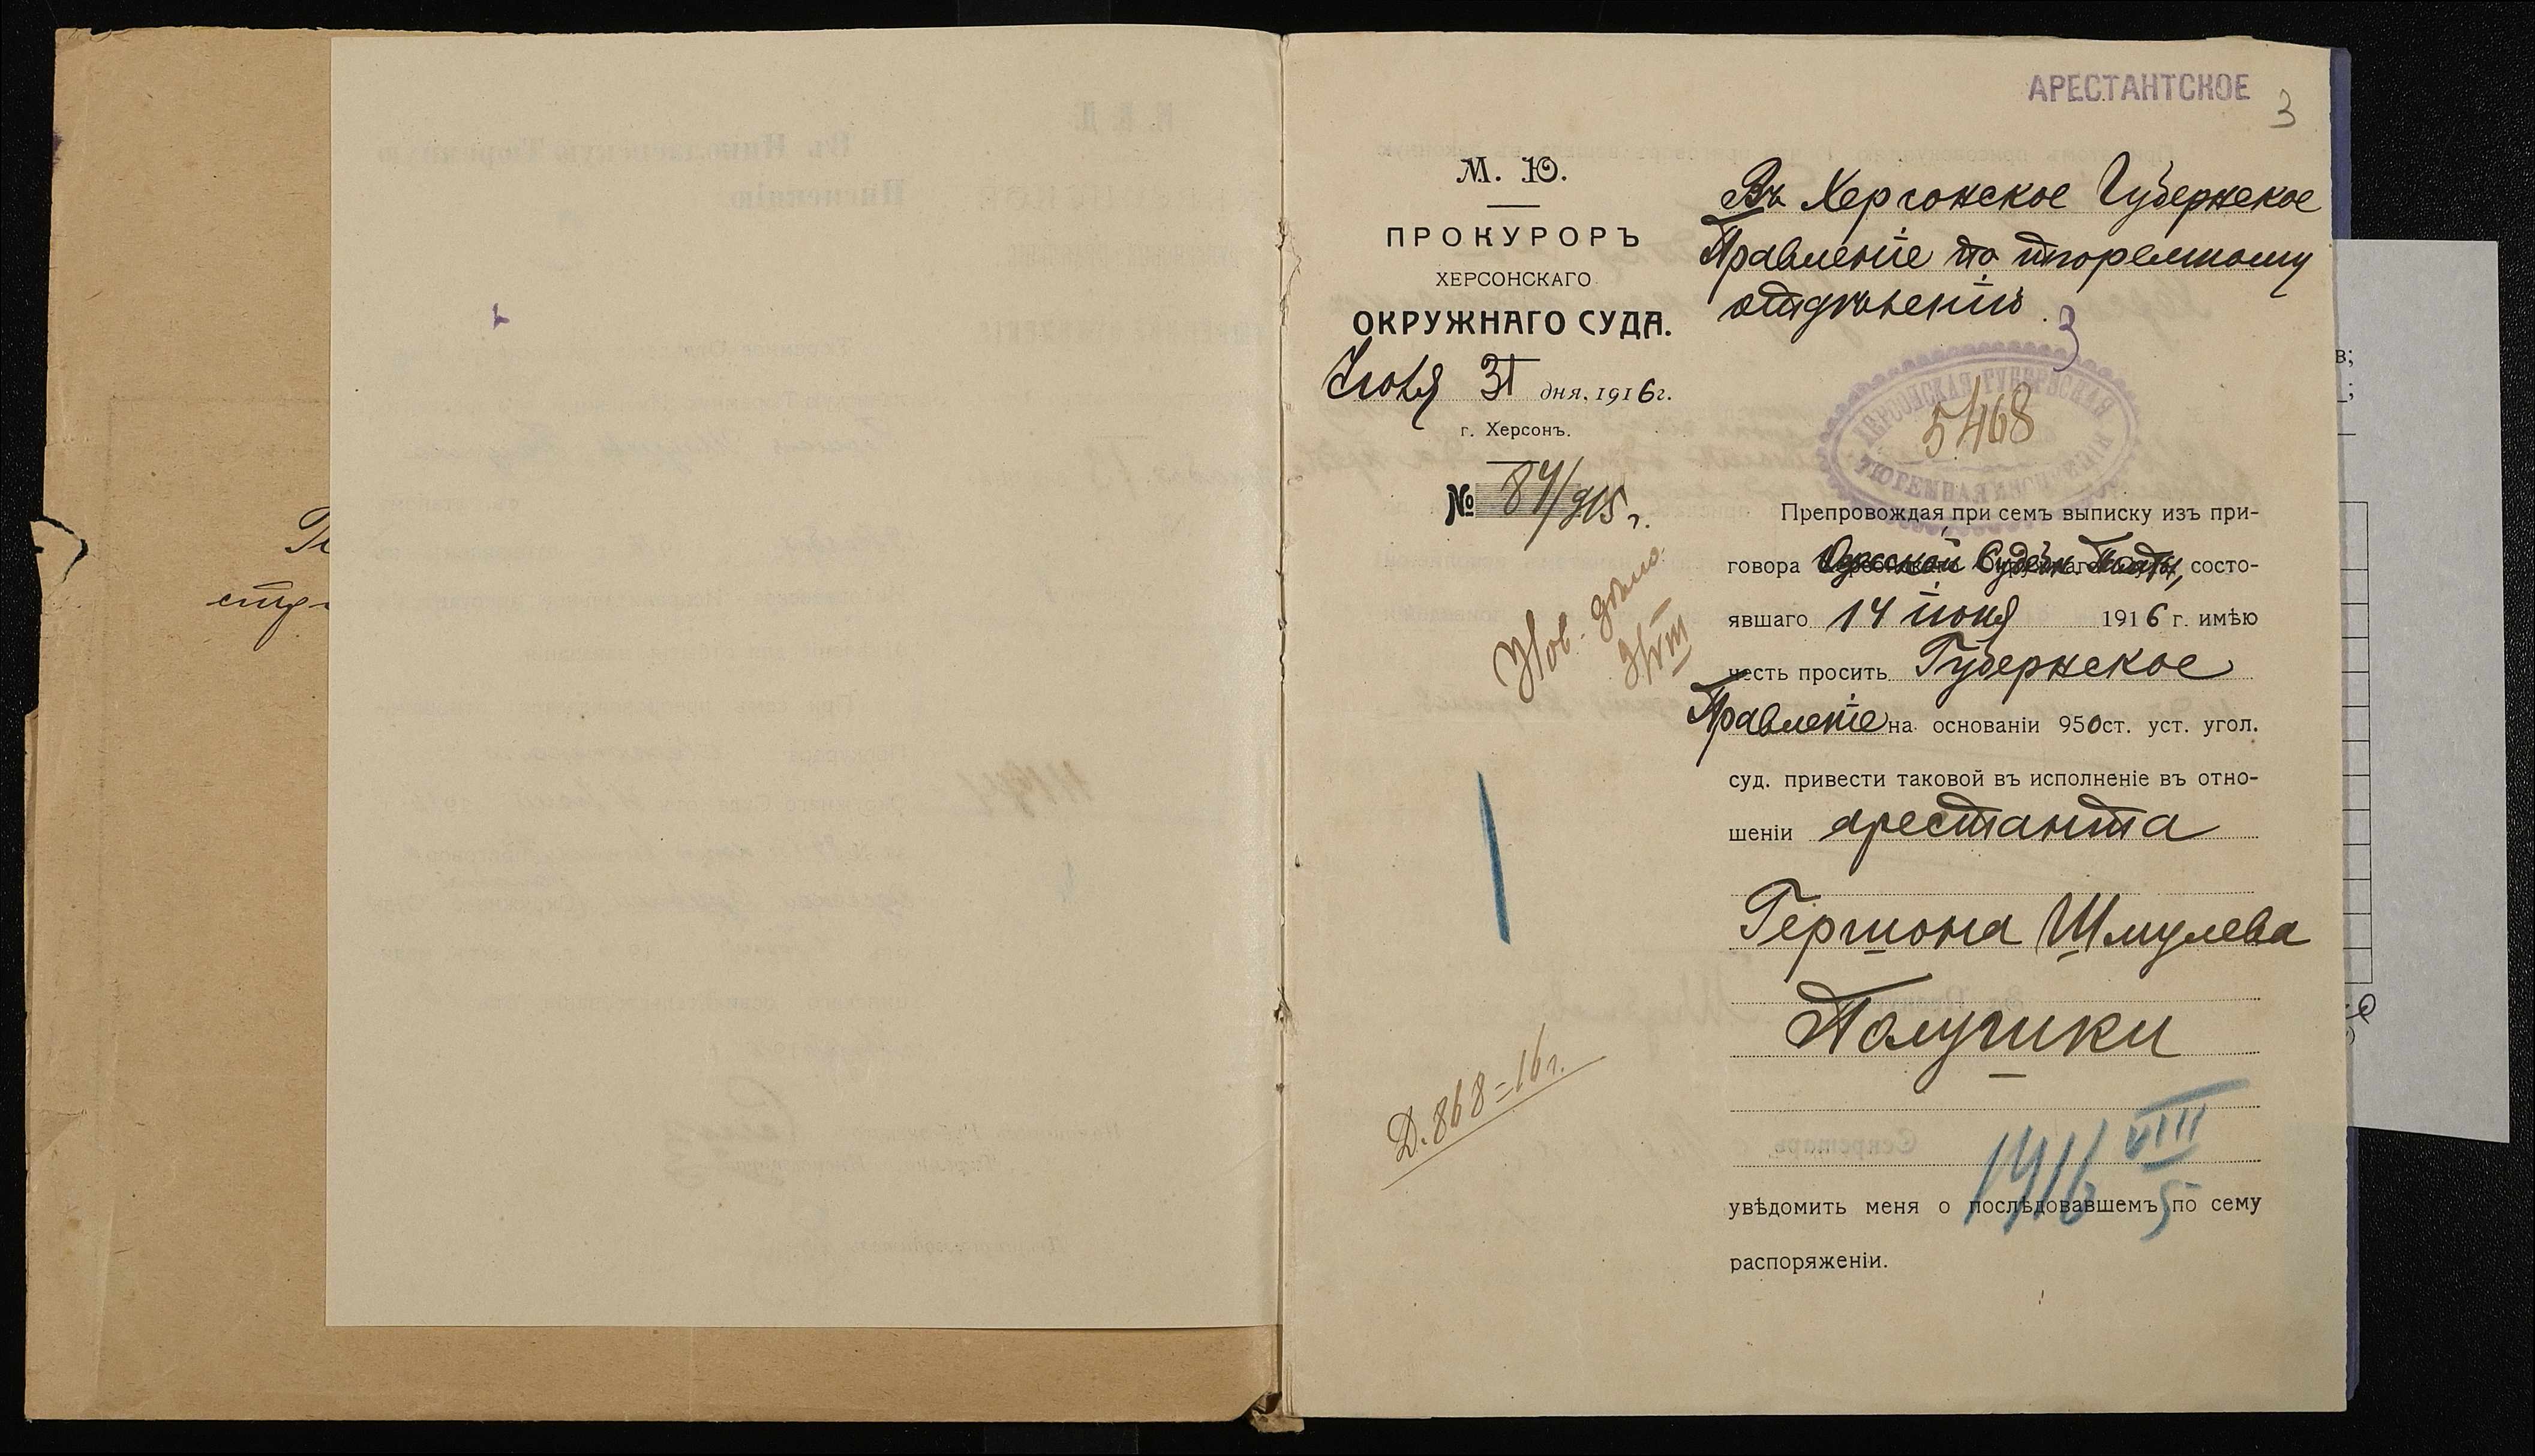 АРЕСТАНТСКОЕ
3
М. Ю.
ПРОКУРОРЪ
ХЕРСОНСКАГО
ОКРУЖНАГО СУДА.
Июля 31 дня, 1916 г.
г. Херсонъ.
№ 84/915 г.
Въ Херсонское Губернское
Правленіе по тюремному
отдѣленію.
3
ХЕРСОНСКАЯ ГУБЕРНСКАЯ
ТЮРЕМНАЯ ИНСПЕКЦІЯ
5468
Препровождая при семъ выписку изъ при-
говора Одесской Судебн. Палаты, состо-
явшаго 14 іюня 1916 г. имѣю
честь просить Губернское
Правленіе на основаніи 950 ст. уст. угол.
суд. привести таковой въ исполненіе въ отно-
шеніи арестанта
Гершона Шмулева
Полушки
увѣдомить меня о послѣдовавшемъ по сему
распоряженіи.
Нов. дѣло.
Д. 868=16 г.
1916 VIII 5